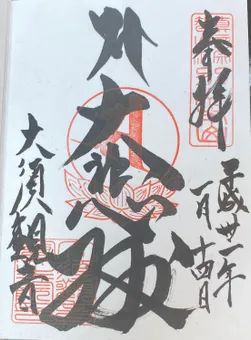 奉拝
平成卅一年
一月十四日
大悲殿
大須観音